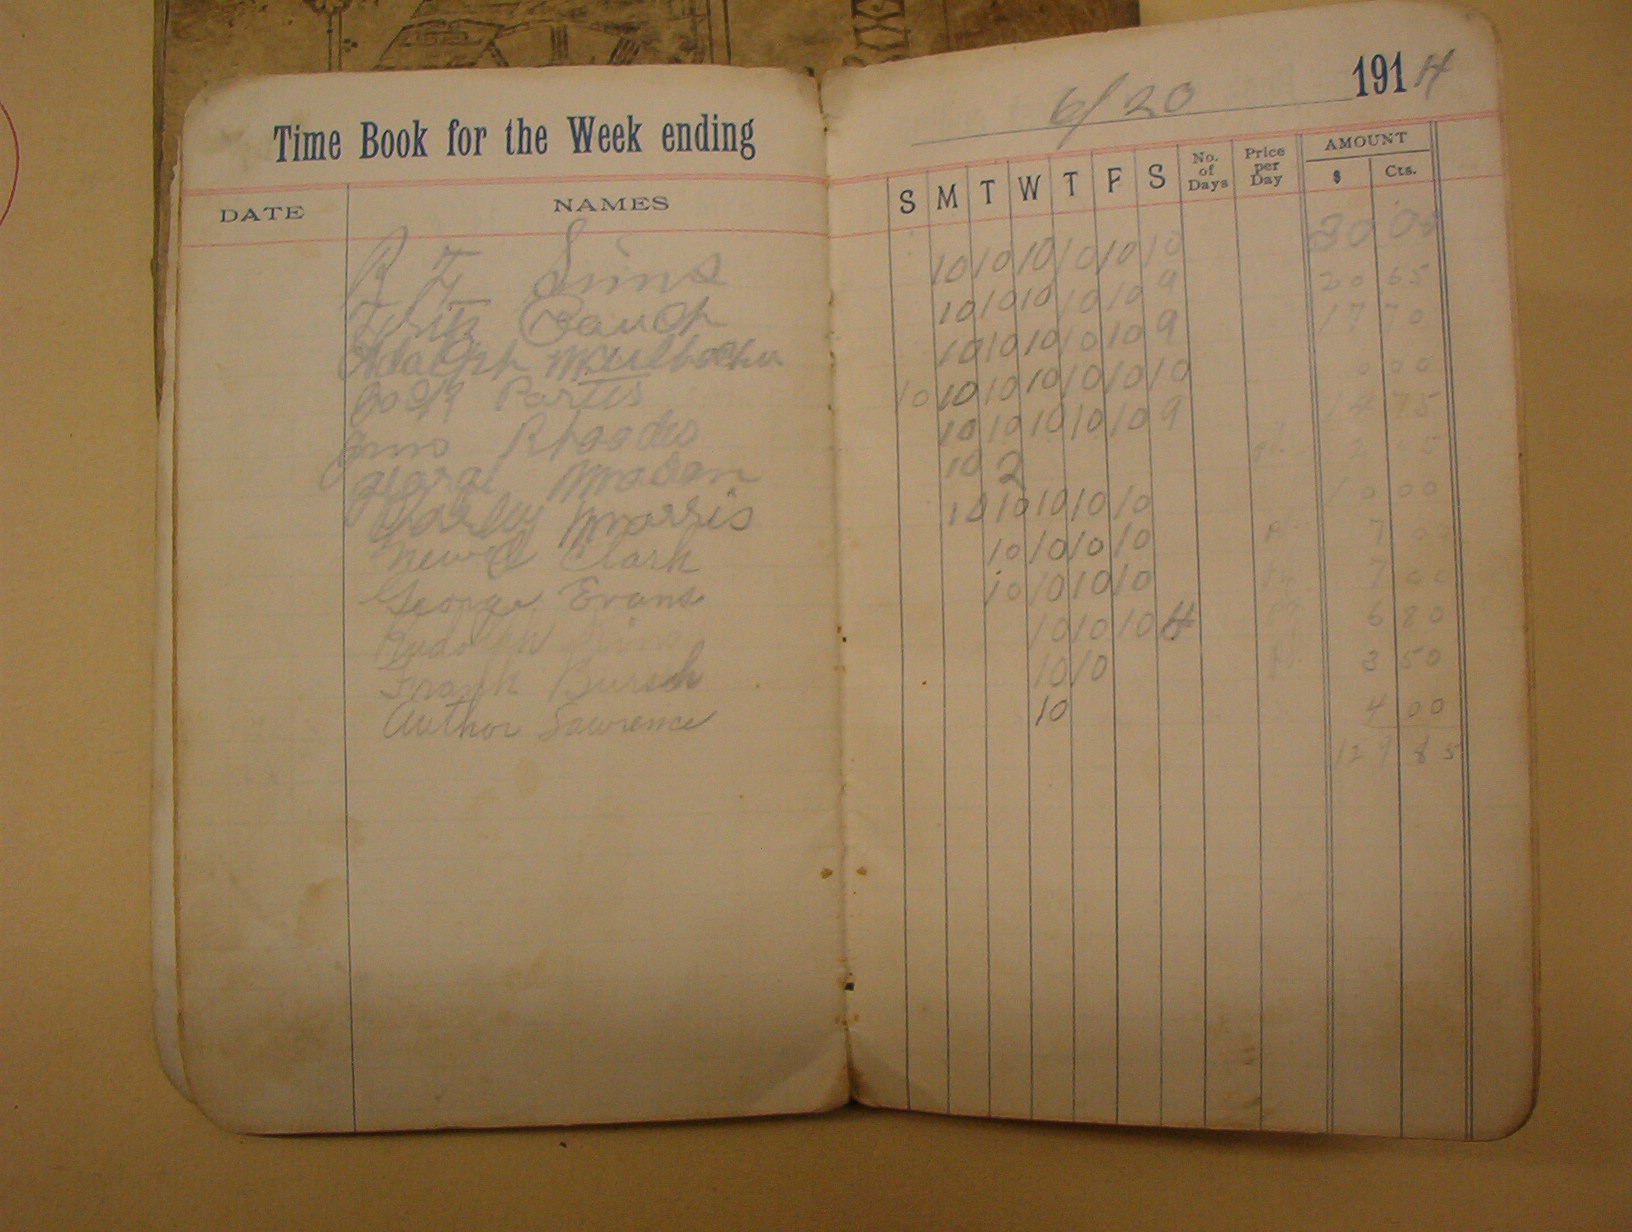 Time Book for the Week ending 6/20 1914
DATE NAMES S M T W T F S No. of Days Price per Day AMOUNT $ Cts.
R F Sims 10 10 10 10 10 10 30 00
Fritz Rauch 10 10 10 10 10 9 20 65
Adolph 10 10 10 10 10 9 17 70
10 10 10 10 10 10 10 0 00
Jno Rhoades 10 10 10 10 10 9 14 75
George Madden 10 2
Charley Morris 10 10 10 10 10 10 00
Clark 10 10 10 10 7 00
George Evans 10 10 10 10 7 00
Rudolph Sims 10 10 10 4 6 80
Frank Bursch 10 10 3 50
Author Lawrence 10 4 00
129 85